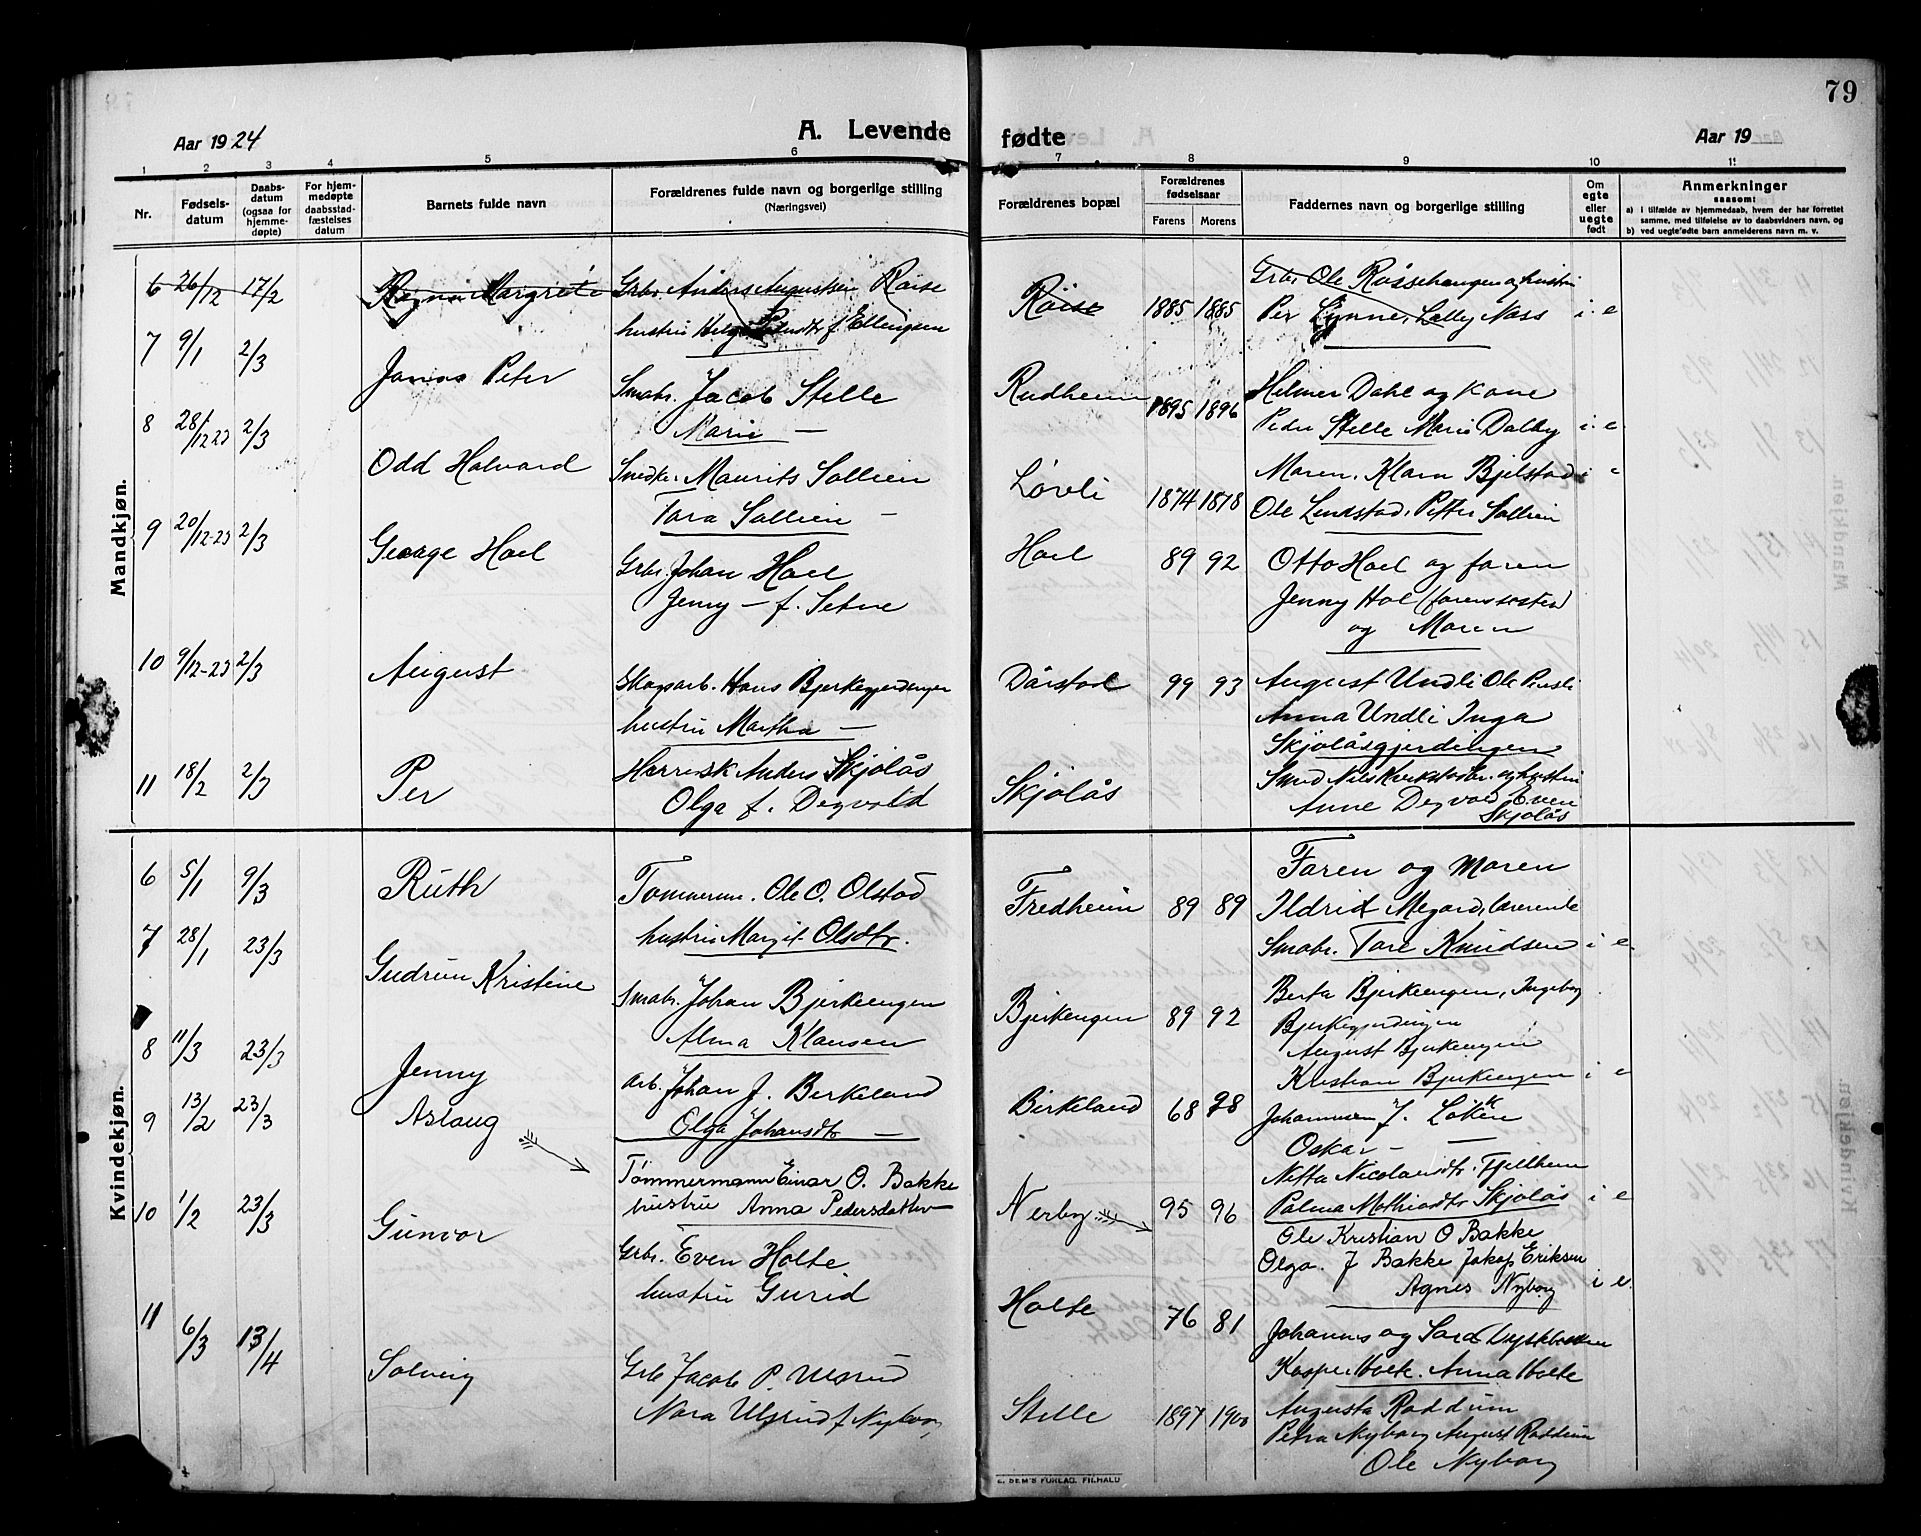 79
Aar 1924
A. Levende fødte
Aar 19
1 2 3 4 5 6 7 8 9 10 11
Nr.
Fødsels-
datum
Daabs-
datum
(ogsaa for
hjemme-
døpte)
For hjem-
medøpte
daabsstad-
fæstelses
datum
Barnets fulde navn
Forældrenes fulde navn og borgerlige stilling
(Næringsvei)
Forældrenes bopæl
Forældrenes
fødselsaar
Farens Morens
Faddernes navn og borgerlige stilling
Om
egte
eller
uegte
født
Anmerkninger
saasom:
a) i tilfælde av hjemmedaab, hvem der har forrettet
samme, med tilføielse av to daabsvidners navn, og
b) ved uegte fødte barn anmelderens navn m. v.
Mandkjøn.
6 26/12 17/2 Margrete Grbr. Anders Augustsen Röise Röise 1885 1885 Grbr. Ole Røssehaugen og hustru
hustru Per Lynne, Næss i e
7 9/1 2/3 Peter Smabr. Jacob Stelle Rudheim 1895 1896 Helmer Dahl og Kone
Marie — Peder Stelle Marie Dalby i e
8 28/12 23 2/3 Odd Halvard Snedker Maurits Sollien Løvli 1874 1878 Moren, Klara Bjelstad i e
Tora Sollien — Ole Lundstad, Petter Sollien
9 20/12-23 2/3 George Hoel Grbr. Johan Hoel Hoel 89 92 Otto Hoel og faren
Jenny — f. Setne Jenny Hol (farens søster)
og Moren
10 9/12-23 2/3 August Skogsarb. Hans Bjerkegjerdingen 99 93 August Undli Ole
hustru Martha — Anna Undli Inga
Skjolåsgjerdingen
11 18/2 2/3 Per Anders Skjolås Skjolås Smed Nils og hustru
Olga f. Degvold Anne Degvold Even
Skjolås
Kvindekjøn.
6 5/1 9/3 Ruth Tømmerm. Ole O. Olstad Fredheim 89 89 Faren og Moren
Ildrid Megard, lærerinde
hustru Margit Olsdtr. Smabr. Tore Knudsen i e
7 28/1 23/3 Gudrun Kristine Smabr. Johan Bjerkeengen Bjerkengen 89 92 Berta Bjerkeengen, Ingeborg
Bjerkegjerdingen
Alma Klausen August Bjerkengen
Kristian Bjerkengen i e
8 11/3 23/3 Jenny Arb. Johan J. Berkeland Birkeland 68 78 Johannesen J. Løkken
Olga Johansdtr — Oskar —
9 13/2 23/3 Aslaug Tømmermann Einar O. Bakke Nerby 95 96 Netta Nicolaisdtr. Fjellheim
hustru Anna Pedersdatter Palma Mathiasdtr Skjolås i e
Ole Kristian O Bakke
Olga. J Bakke Jakop Eriksen
Agnes Nyborg i e
10 1/2 23/3 Gunvor Grbr. Even Holte Holte 76 81 Johannes og Sara
hustru Gurid Kasper Holte. Anna Holte
11 6/3 13/4 Solveig Grb Jacob P. Ulsrud Stelle 1897 1900 Augusta Roddum
Nora Ulsrud f Nyborg Petra Nyborg August Roddum
Ole Nyborg